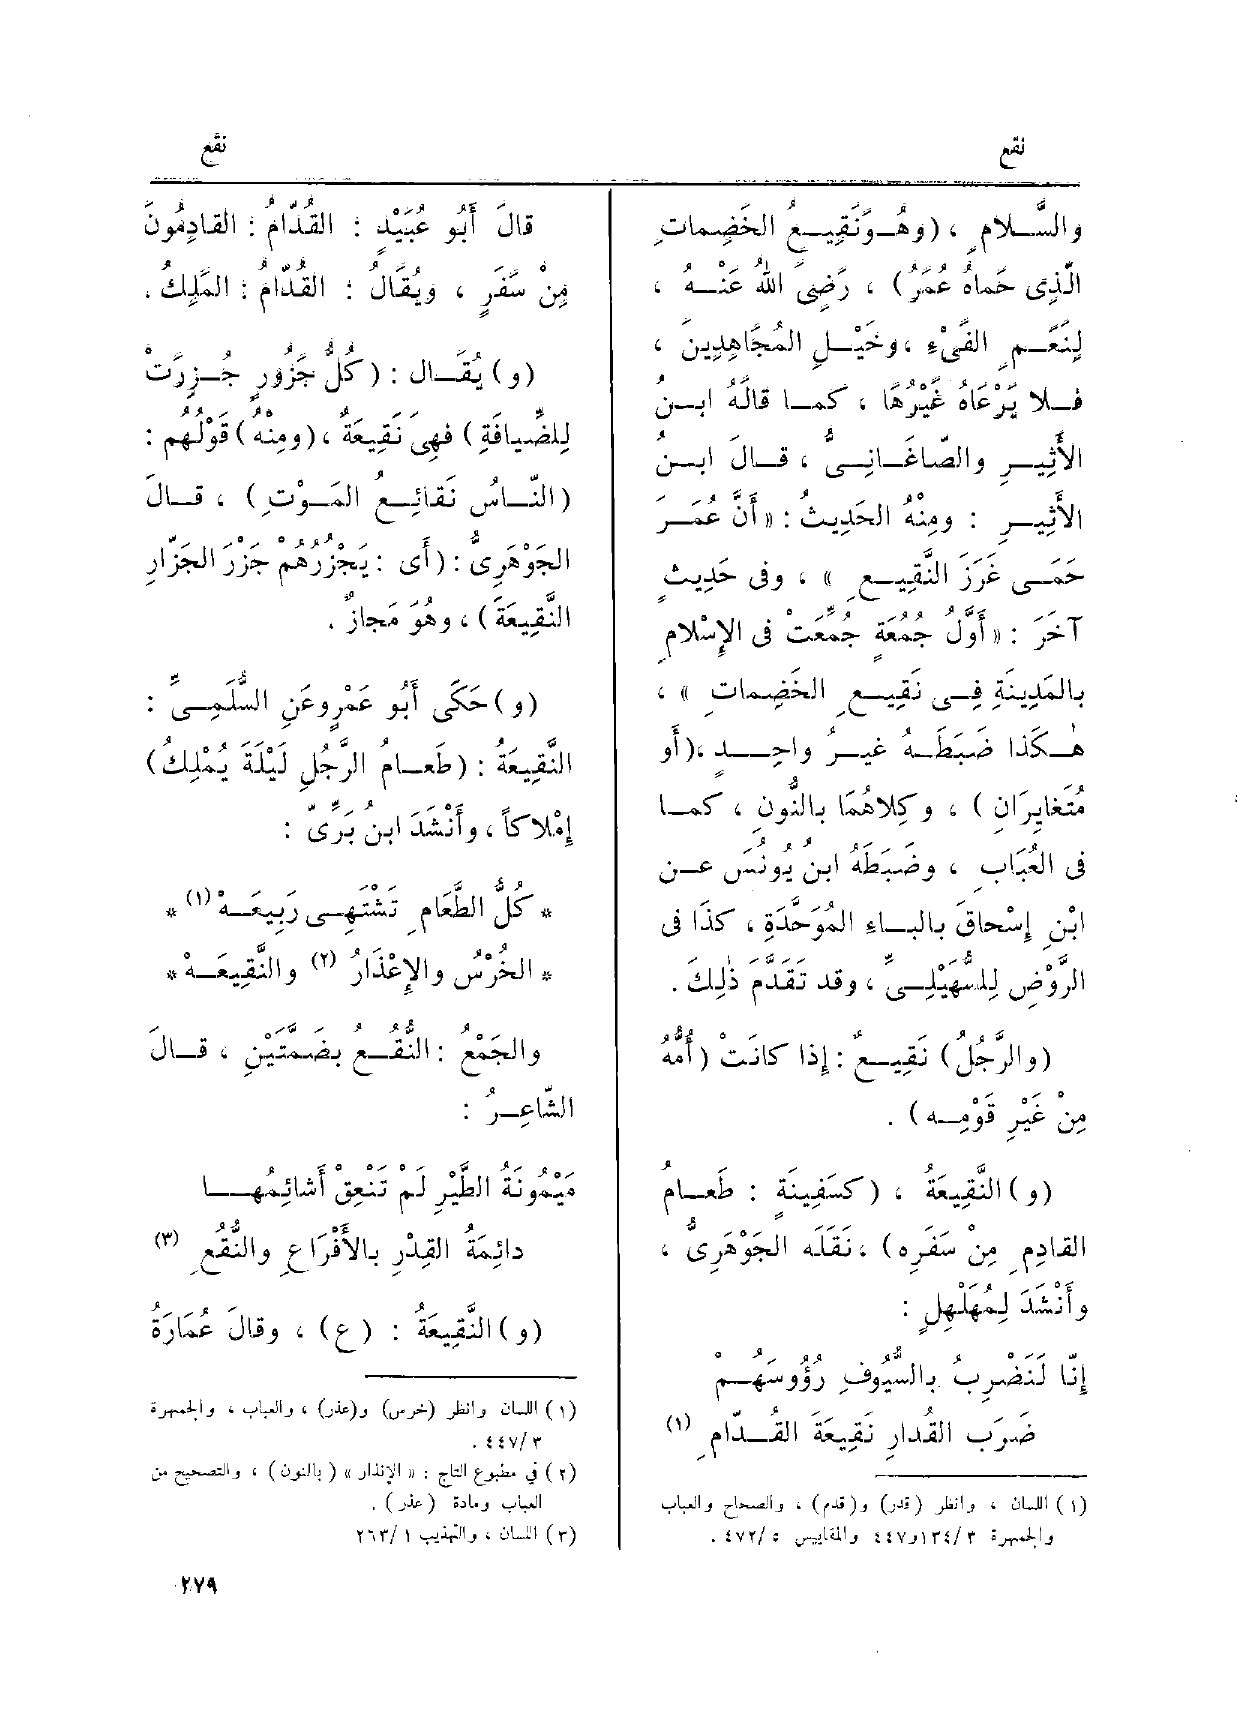 نقع
نقع
والسَّلامِ ، (وهُو نَقِيعُ الخَضِماتِ
الَّذِى حَماهُ عُمَرُ) ، رَضِىَ اللهُ عَنْهُ ،
لِنَعَمِ الفَىْءِ ، وخَيْلِ المُجَاهِدِينَ ،
فلا يَرْعَاهُ غَيْرُهَا ، كما قالَهُ ابنُ
الأَثِيرِ والصّاغَانِىُّ ، قالَ ابنُ
الأَثِيرِ : ومِنْهُ الحَدِيثُ : « أَنَّ عُمَرَ
حَمَى غَرَزَ النَّقِيعِ » ، وفى حَدِيثٍ
آخَرَ : « أَوَّلُ جُمُعَةٍ جُمِّعَتْ فى الإِسْلامِ
بالمَدِينَةِ فِى نَقِيعِ الخَضِماتِ » ،
هٰكَذا ضَبَطَهُ غيرُ واحِدٍ ، (أو
مُتَغايِرَانِ ) ، وكِلاهُمَا بالنُّونِ ، كما
فى العُبَابِ ، وضَبَطَهُ ابنُ يُونُسَ عن
ابْنِ إِسْحاقَ بالباءِ المُوَحَّدَةِ ، كَذَا فى
الرَّوْضِ لِلسُّهَيْلِىِّ ، وقد تَقَدَّم ذٰلِكَ .
(والرَّجُلُ) نَقِيعٌ : إذا كانَتْ (أُمُّهُ
مِنْ غَيْرِ قَوْمِه ) .
(و) النَّقِيعَةُ ، (كسَفِينَةٍ : طَعامُ
القادِمِ مِنْ سَفَرِه ) ، نَقَلَه الجَوْهَرِىُّ ،
وأَنْشَدَ لِمُهَلْهِلٍ :
إِنّا لَنَضْرِبُ بالسُّيُوفِ رُؤُوسَهُمْ
ضَرْبَ القُدارِ نَقِيعَةَ القُدّامِ (١)
(١) اللسان ، وانظر (قدر) و(قدم) ، والصحاح والعباب
والجمهرة ٣/١٣٤و٤٤٧ والمقاييس ٥ /٤٧٢ .
قالَ أَبُو عُبَيْدٍ : القُدّامُ : القادِمُونَ
مِنْ سَفَرٍ ، ويُقَالُ : القُدّامُ : المَلِكُ .
(و) يُقَال : (كُلُّ جَزُورٍ جُزِرَتْ
لِلضِّيافَةِ ) فهِىَ نَقِيعَةٌ ، (ومِنه ) قَوْلُهم :
(النّاسُ نَقائِعُ المَوْتِ ) ، قالَ
الجَوْهَرِىُّ : (أَى : يَجْزُرُهُم جَزْرَ الجَزّارِ
النَّقِيعَةَ ) ، وهُوَ مَجازٌ .
(و) حَكَى أَبُو عَمْرٍو عَنِ السُّلَمِىِّ :
النَّقِيعَةُ : (طَعامُ الرَّجُلِ لَيْلَةَ يُمْلِكُ)
إِمْلاكاً ، وأَنْشَدَ ابنُ بَرِّىّ :
* كلُّ الطَّعَامِ تَشْتَهِى رَبِيعَهْ (١) *
* الخُرْسُ والإِعْذَارُ (٢) والنَّقِيعَهْ *
والجَمْعُ : النُّقُع بضَمَّتَيْنِ ، قالَ
الشّاعِرُ :
مَيْمُونَةُ الطَّيْرِ لَمْ تَنْعِقْ أَشائِمُها
دائِمَةُ القِدْرِ بالأَفْرَاعِ والنُّقُعِ (٣)
(و) النَّقِيعَةُ : (ع) ، وقالَ عُمَارَةُ
(١) اللسان وانظر (خرس) و(عذر) ، والعباب ، والجمهرة
٣ /٤٤٧ .
(٢) في مطبوع التاج : « الإنذار » ( بالنون ) ، والتصحيح من
العباب ومادة (عذر ) .
(٣) اللسان ، والتهذيب ١ /٢٦٣
٢٧٩